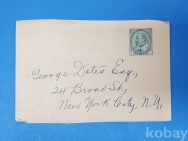 George Dotes Esq,
24 Broad St,
New York City, N.Y,
kobay